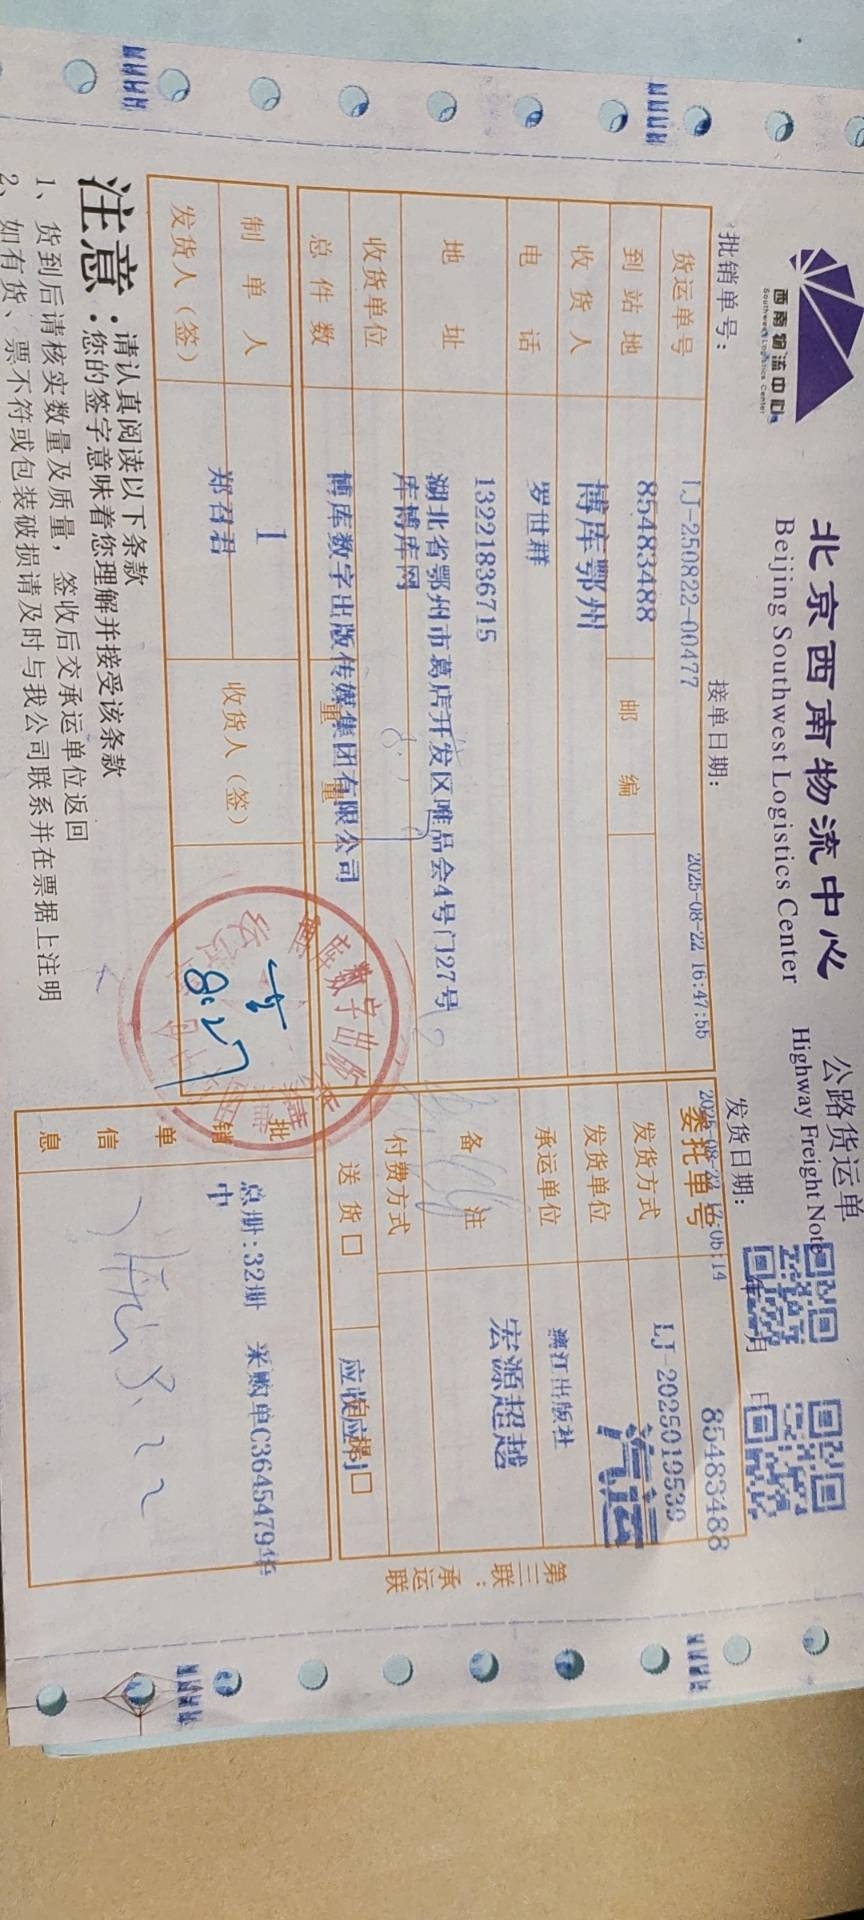 西南物流中心
Southwest Logistics Center
北京西南物流中心
Beijing Southwest Logistics Center
公路货运单
Highway Freight Note
批销单号:
接单日期:
2025-08-22 16:47:55
发货日期:
年 月 日
货运单号
LJ-250822-00477
委托单号
85483488
到站地
85483488
邮编
发货方式
LJ-2025019539
收货人
博库鄂州
发货单位
汽运
电话
罗世群
承运单位
漓江出版社
地址
13221836715
湖北省鄂州市葛店开发区唯品会4号门27号
库博库网
备注
宏源超越
收货单位
博库数字出版传媒集团有限公司
付费方式
总件数
送货口
制单人
1
郑召君
收货人(签)
8.27
发货人(签)
批销单信息
总册:32册 采购单C36454794
中
8.22
注意:
请认真阅读以下条款
您的签字意味着您理解并接受该条款
1、货到后请核实数量及质量,签收后交承运单位返回
2、如有货、票不符或包装破损请及时与我公司联系并在票据上注明
第三联:承运联